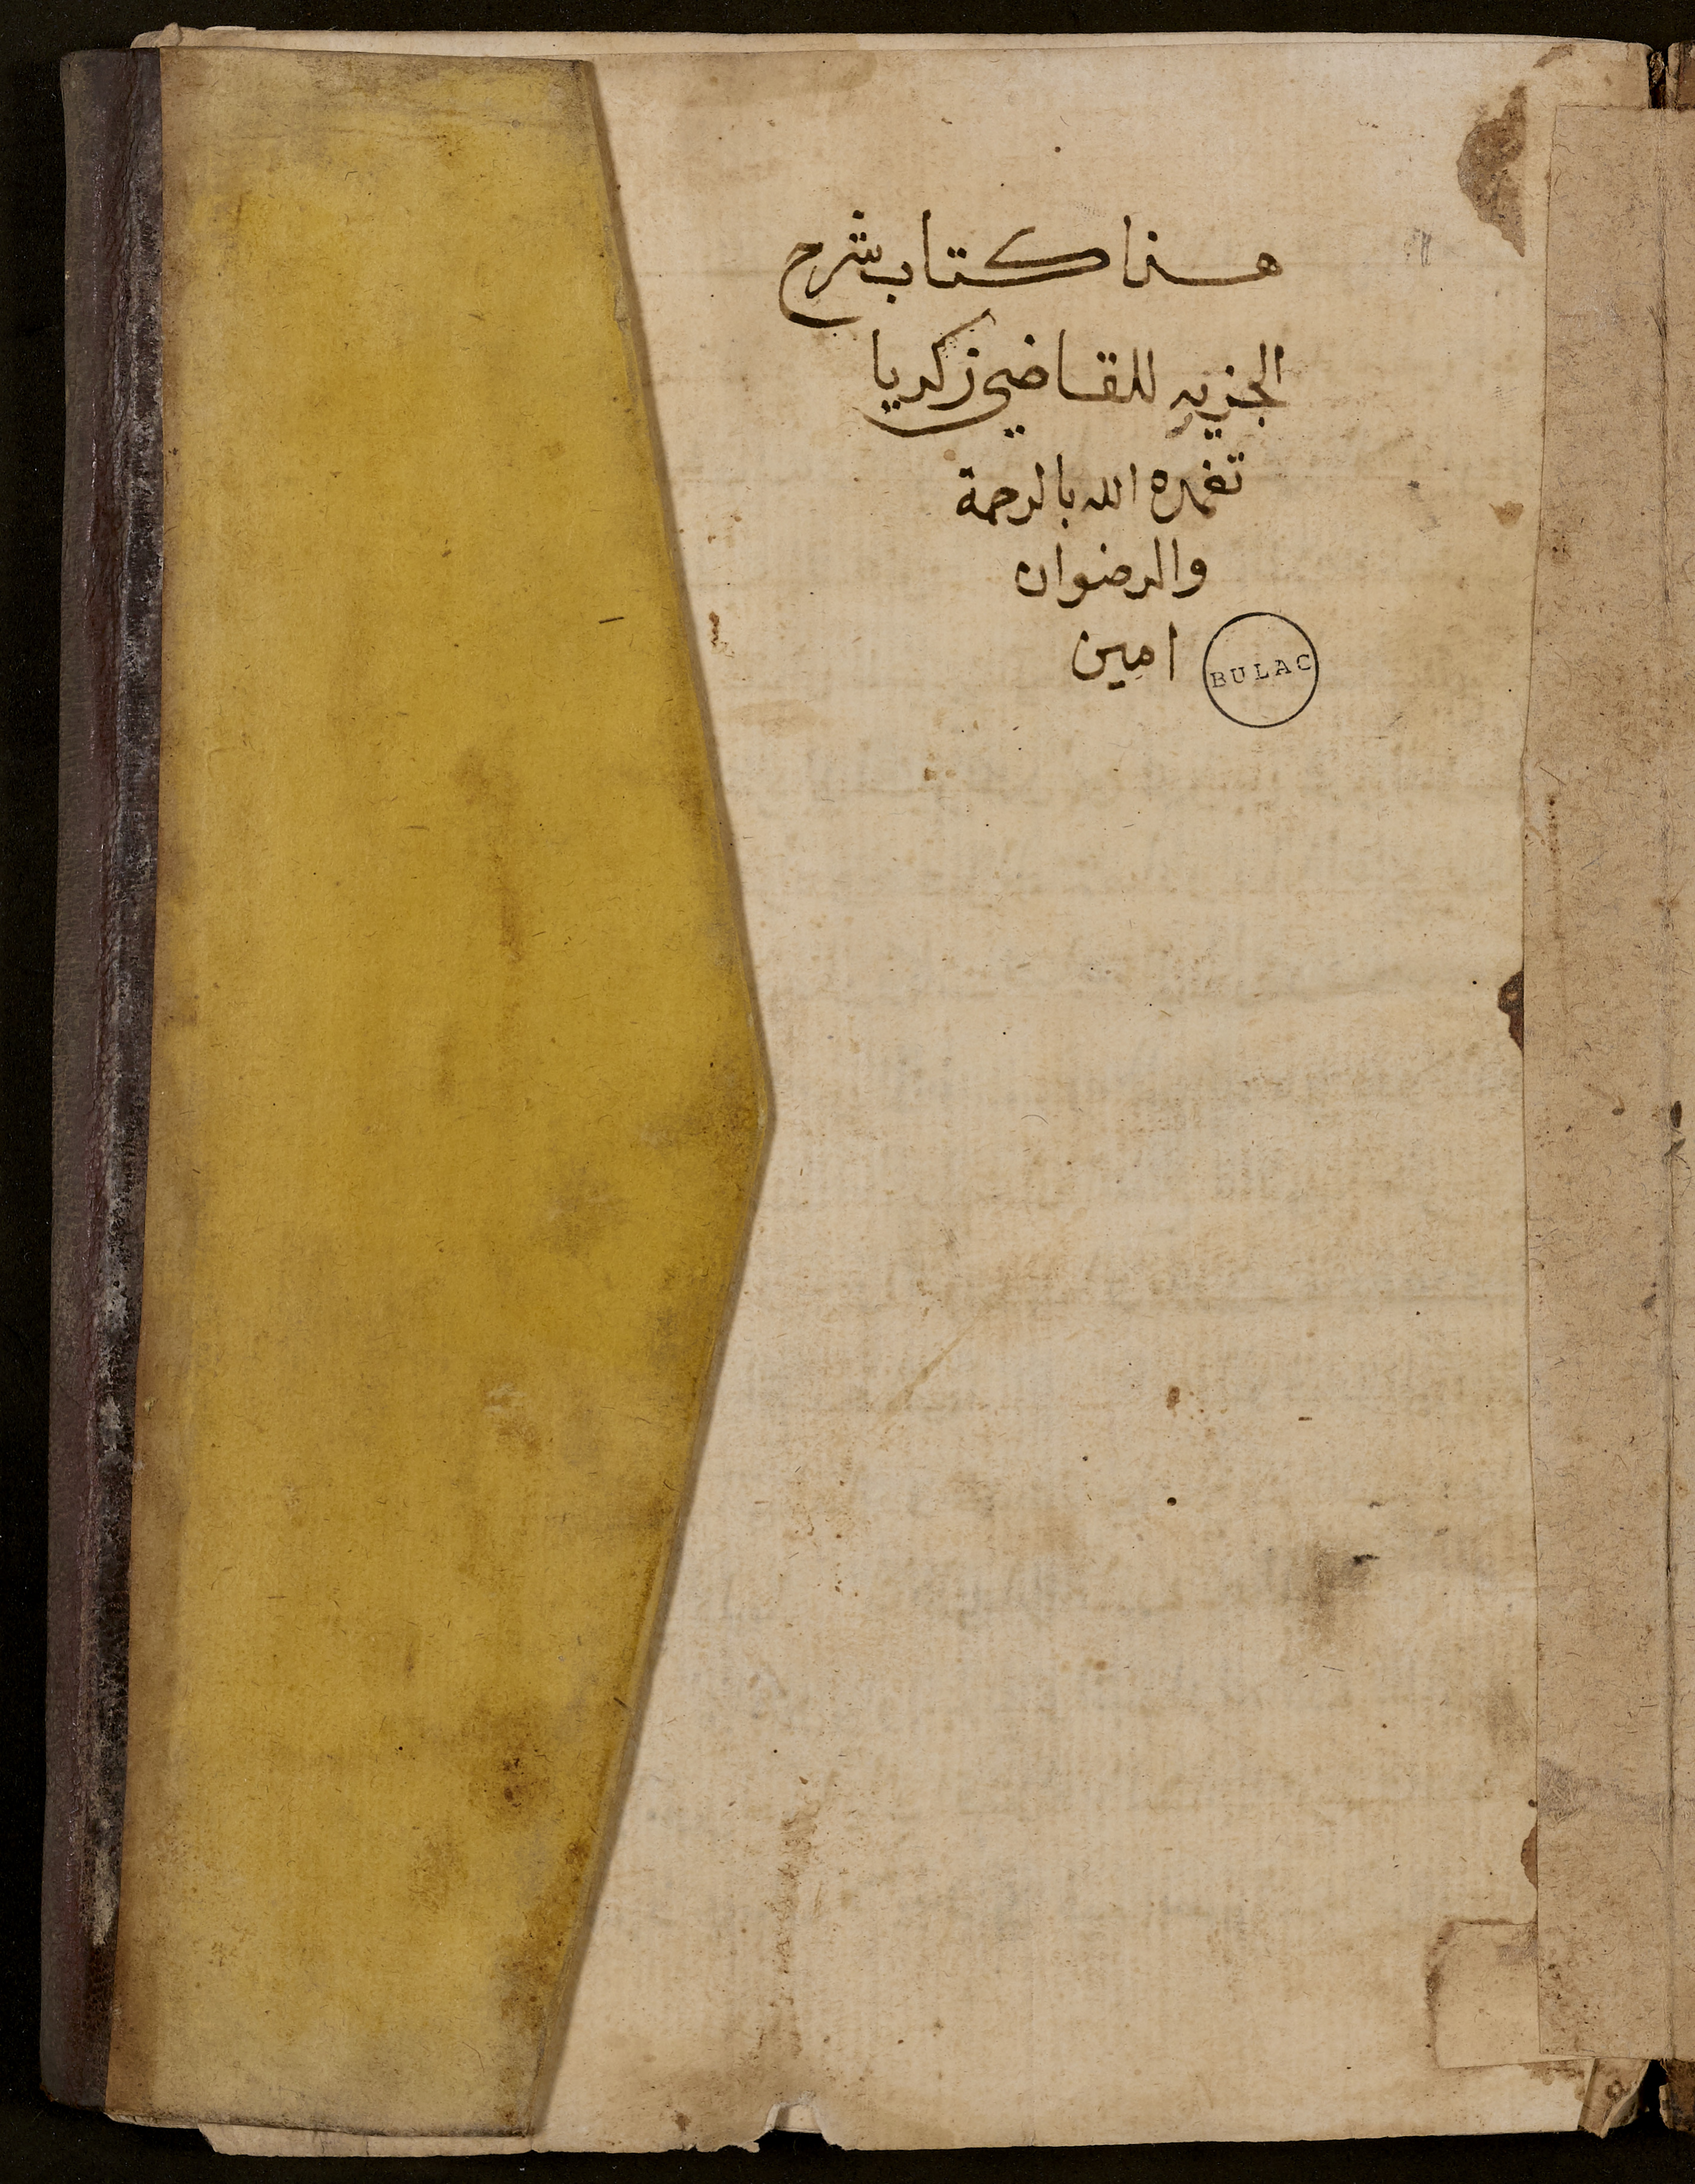 هذا كتاب شرح
الجزريه للقاضي زكريا
تغمده الله بالرحمة
والرضوان
امين
BULAC